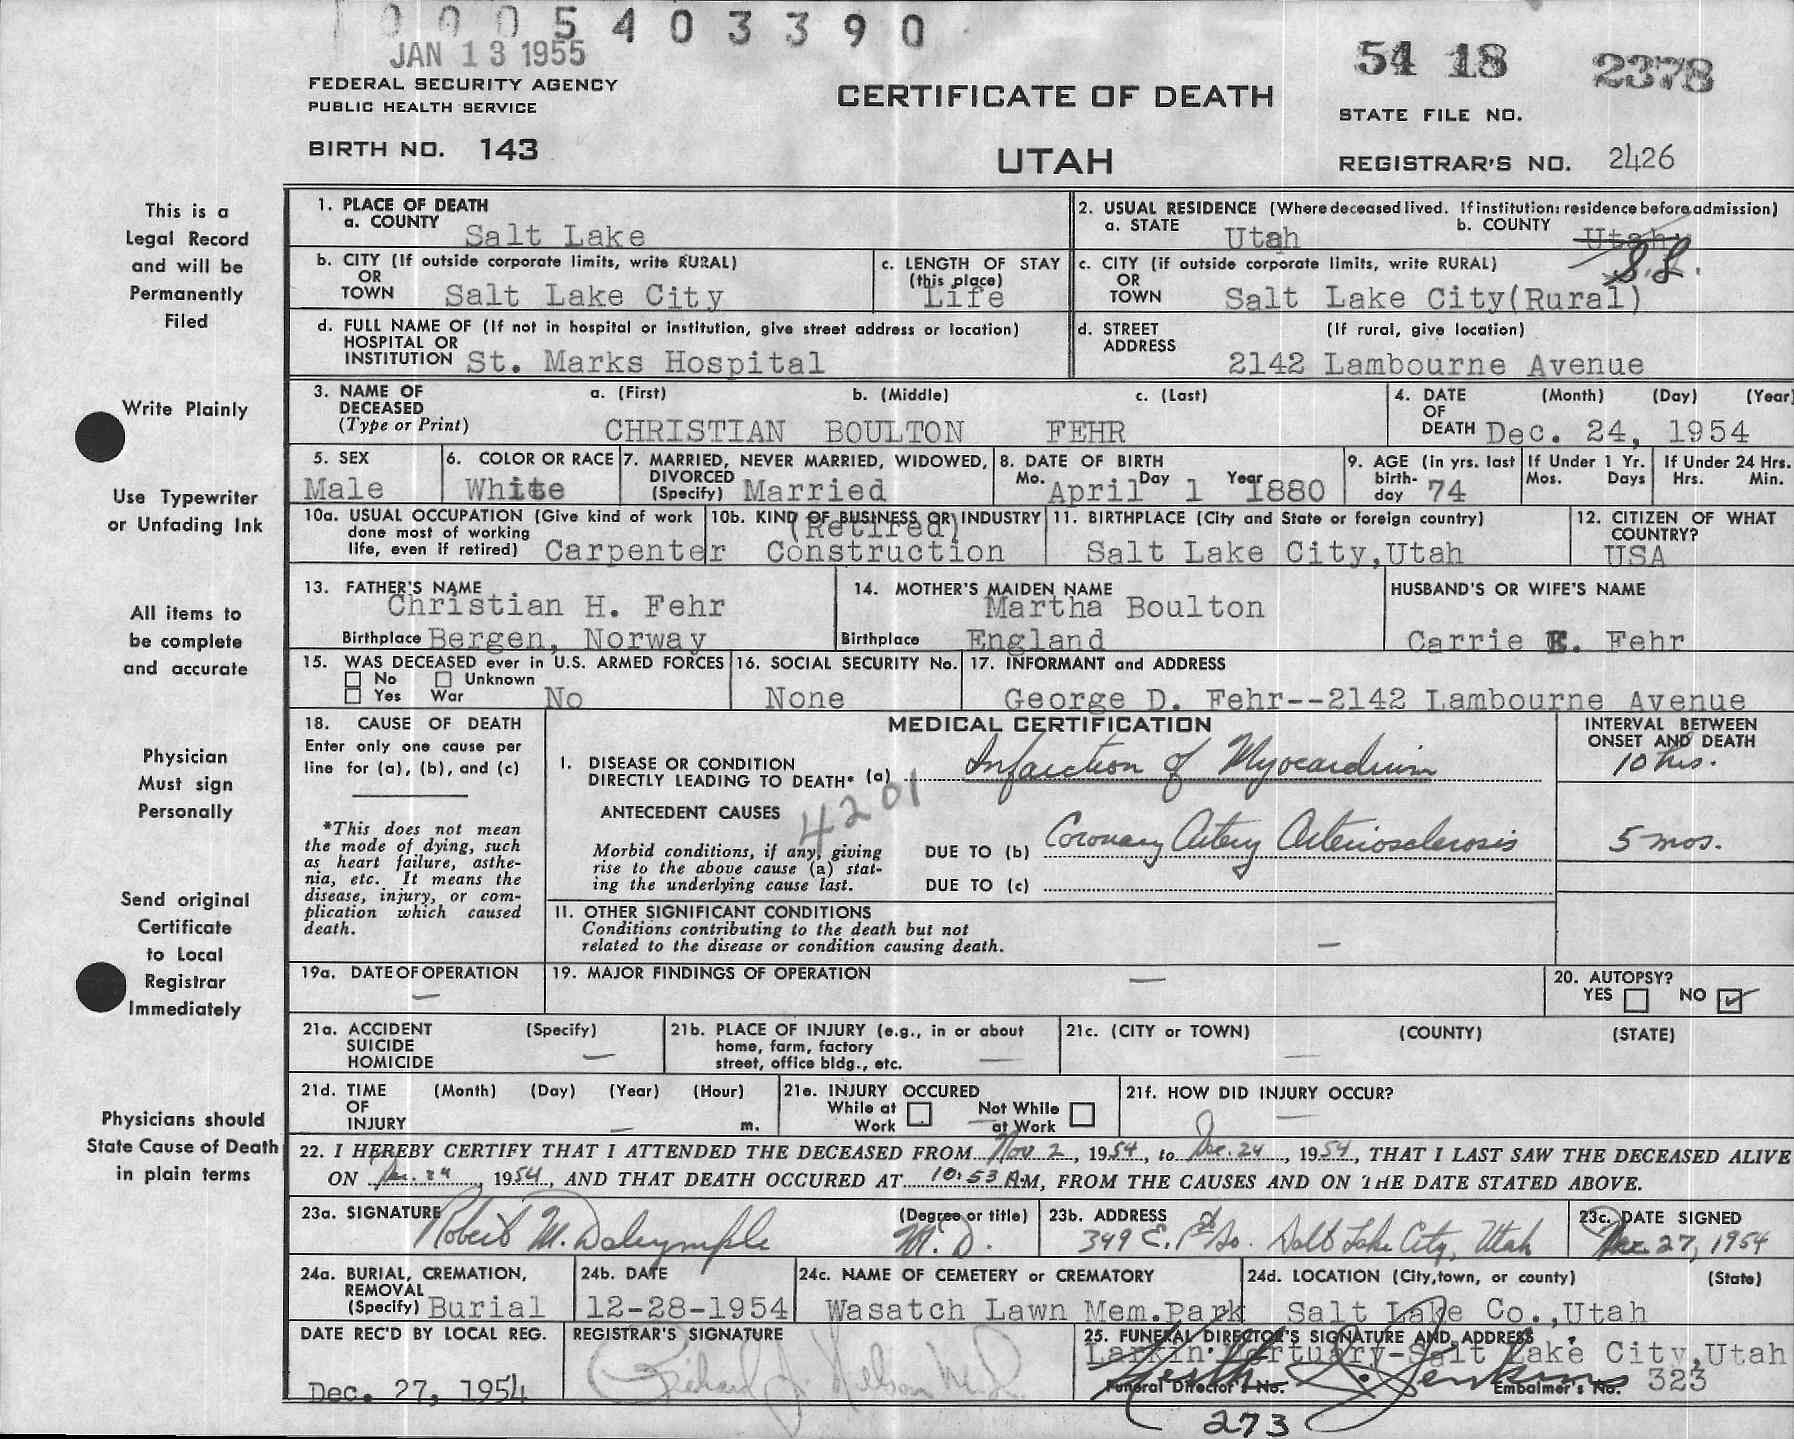 0005403390
JAN 13 1955
54 18 2378
FEDERAL SECURITY AGENCY
PUBLIC HEALTH SERVICE
CERTIFICATE OF DEATH
STATE FILE NO.
BIRTH NO. 143
UTAH
REGISTRAR'S NO. 2426
This is a
Legal Record
and will be
Permanently
Filed
Write Plainly
Use Typewriter
or Unfading Ink
All items to
be complete
and accurate
Physician
Must sign
Personally
Send original
Certificate
to Local
Registrar
Immediately
Physicians should
State Cause of Death
in plain terms
1. PLACE OF DEATH
a. COUNTY Salt Lake
2. USUAL RESIDENCE (Where deceased lived. If institution: residence before admission)
a. STATE Utah b. COUNTY Utah S.L.
b. CITY (If outside corporate limits, write RURAL)
OR
TOWN Salt Lake City
c. LENGTH OF STAY
(this place)
Life
c. CITY (if outside corporate limits, write RURAL)
OR
TOWN Salt Lake City(Rural)
d. FULL NAME OF (If not in hospital or institution, give street address or location)
HOSPITAL OR
INSTITUTION St. Marks Hospital
d. STREET (If rural, give location)
ADDRESS
2142 Lambourne Avenue
3. NAME OF a. (First) b. (Middle) c. (Last)
DECEASED
(Type or Print) CHRISTIAN BOULTON FEHR
4. DATE (Month) (Day) (Year)
OF
DEATH Dec. 24, 1954
5. SEX
Male
6. COLOR OR RACE
White
7. MARRIED, NEVER MARRIED, WIDOWED,
DIVORCED
(Specify) Married
8. DATE OF BIRTH
Mo. April Day 1 Year 1880
9. AGE (in yrs. last
birth-
day 74
If Under 1 Yr.
Mos. Days
If Under 24 Hrs.
Hrs. Min.
10a. USUAL OCCUPATION (Give kind of work
done most of working
life, even if retired) Carpenter
10b. KIND OF BUSINESS OR INDUSTRY
(Retired)
Construction
11. BIRTHPLACE (City and State or foreign country)
Salt Lake City,Utah
12. CITIZEN OF WHAT
COUNTRY?
USA
13. FATHER'S NAME
Christian H. Fehr
Birthplace Bergen, Norway
14. MOTHER'S MAIDEN NAME
Martha Boulton
Birthplace England
HUSBAND'S OR WIFE'S NAME
Carrie E. Fehr
15. WAS DECEASED ever in U.S. ARMED FORCES
No Unknown
Yes War No
16. SOCIAL SECURITY No.
None
17. INFORMANT and ADDRESS
George D. Fehr--2142 Lambourne Avenue
18. CAUSE OF DEATH
Enter only one cause per
line for (a), (b), and (c)
*This does not mean
the mode of dying, such
as heart failure, asthe-
nia, etc. It means the
disease, injury, or com-
plication which caused
death.
MEDICAL CERTIFICATION
INTERVAL BETWEEN
ONSET AND DEATH
I. DISEASE OR CONDITION
DIRECTLY LEADING TO DEATH* (a) Infarction of Myocardium 10 hrs.
4201
ANTECEDENT CAUSES
Morbid conditions, if any, giving
rise to the above cause (a) stat-
ing the underlying cause last.
DUE TO (b) Coronary Artery Arteriosclerosis 5 mos.
DUE TO (c)
II. OTHER SIGNIFICANT CONDITIONS
Conditions contributing to the death but not
related to the disease or condition causing death. —
19a. DATE OF OPERATION
—
19. MAJOR FINDINGS OF OPERATION —
20. AUTOPSY?
YES NO ✓
21a. ACCIDENT (Specify)
SUICIDE
HOMICIDE —
21b. PLACE OF INJURY (e.g., in or about
home, farm, factory
street, office bldg., etc. —
21c. (CITY or TOWN) (COUNTY) (STATE)
—
21d. TIME (Month) (Day) (Year) (Hour)
OF
INJURY — m.
21e. INJURY OCCURED
While at Not While
Work at Work
21f. HOW DID INJURY OCCUR?
—
22. I HEREBY CERTIFY THAT I ATTENDED THE DECEASED FROM Nov 2, 1954, to Dec. 24, 1954, THAT I LAST SAW THE DECEASED ALIVE
ON Dec. 24, 1954, AND THAT DEATH OCCURED AT 10:53 A.M, FROM THE CAUSES AND ON THE DATE STATED ABOVE.
23a. SIGNATURE (Degree or title)
Robert M. Dalrymple M.D.
23b. ADDRESS
349 E. 1st So. Salt Lake City, Utah
23c. DATE SIGNED
Dec. 27, 1954
24a. BURIAL, CREMATION,
REMOVAL
(Specify) Burial
24b. DATE
12-28-1954
24c. NAME OF CEMETERY or CREMATORY
Wasatch Lawn Mem.Park
24d. LOCATION (City,town, or county) (State)
Salt Lake Co.,Utah
DATE REC'D BY LOCAL REG.
Dec. 27, 1954
REGISTRAR'S SIGNATURE
Richard J. Nelson M.D.
25. FUNERAL DIRECTOR'S SIGNATURE AND ADDRESS
Larkin Mortuary-Salt Lake City,Utah
Keith L. Jenkins
Funeral Director's No. Embalmer's No. 323
273